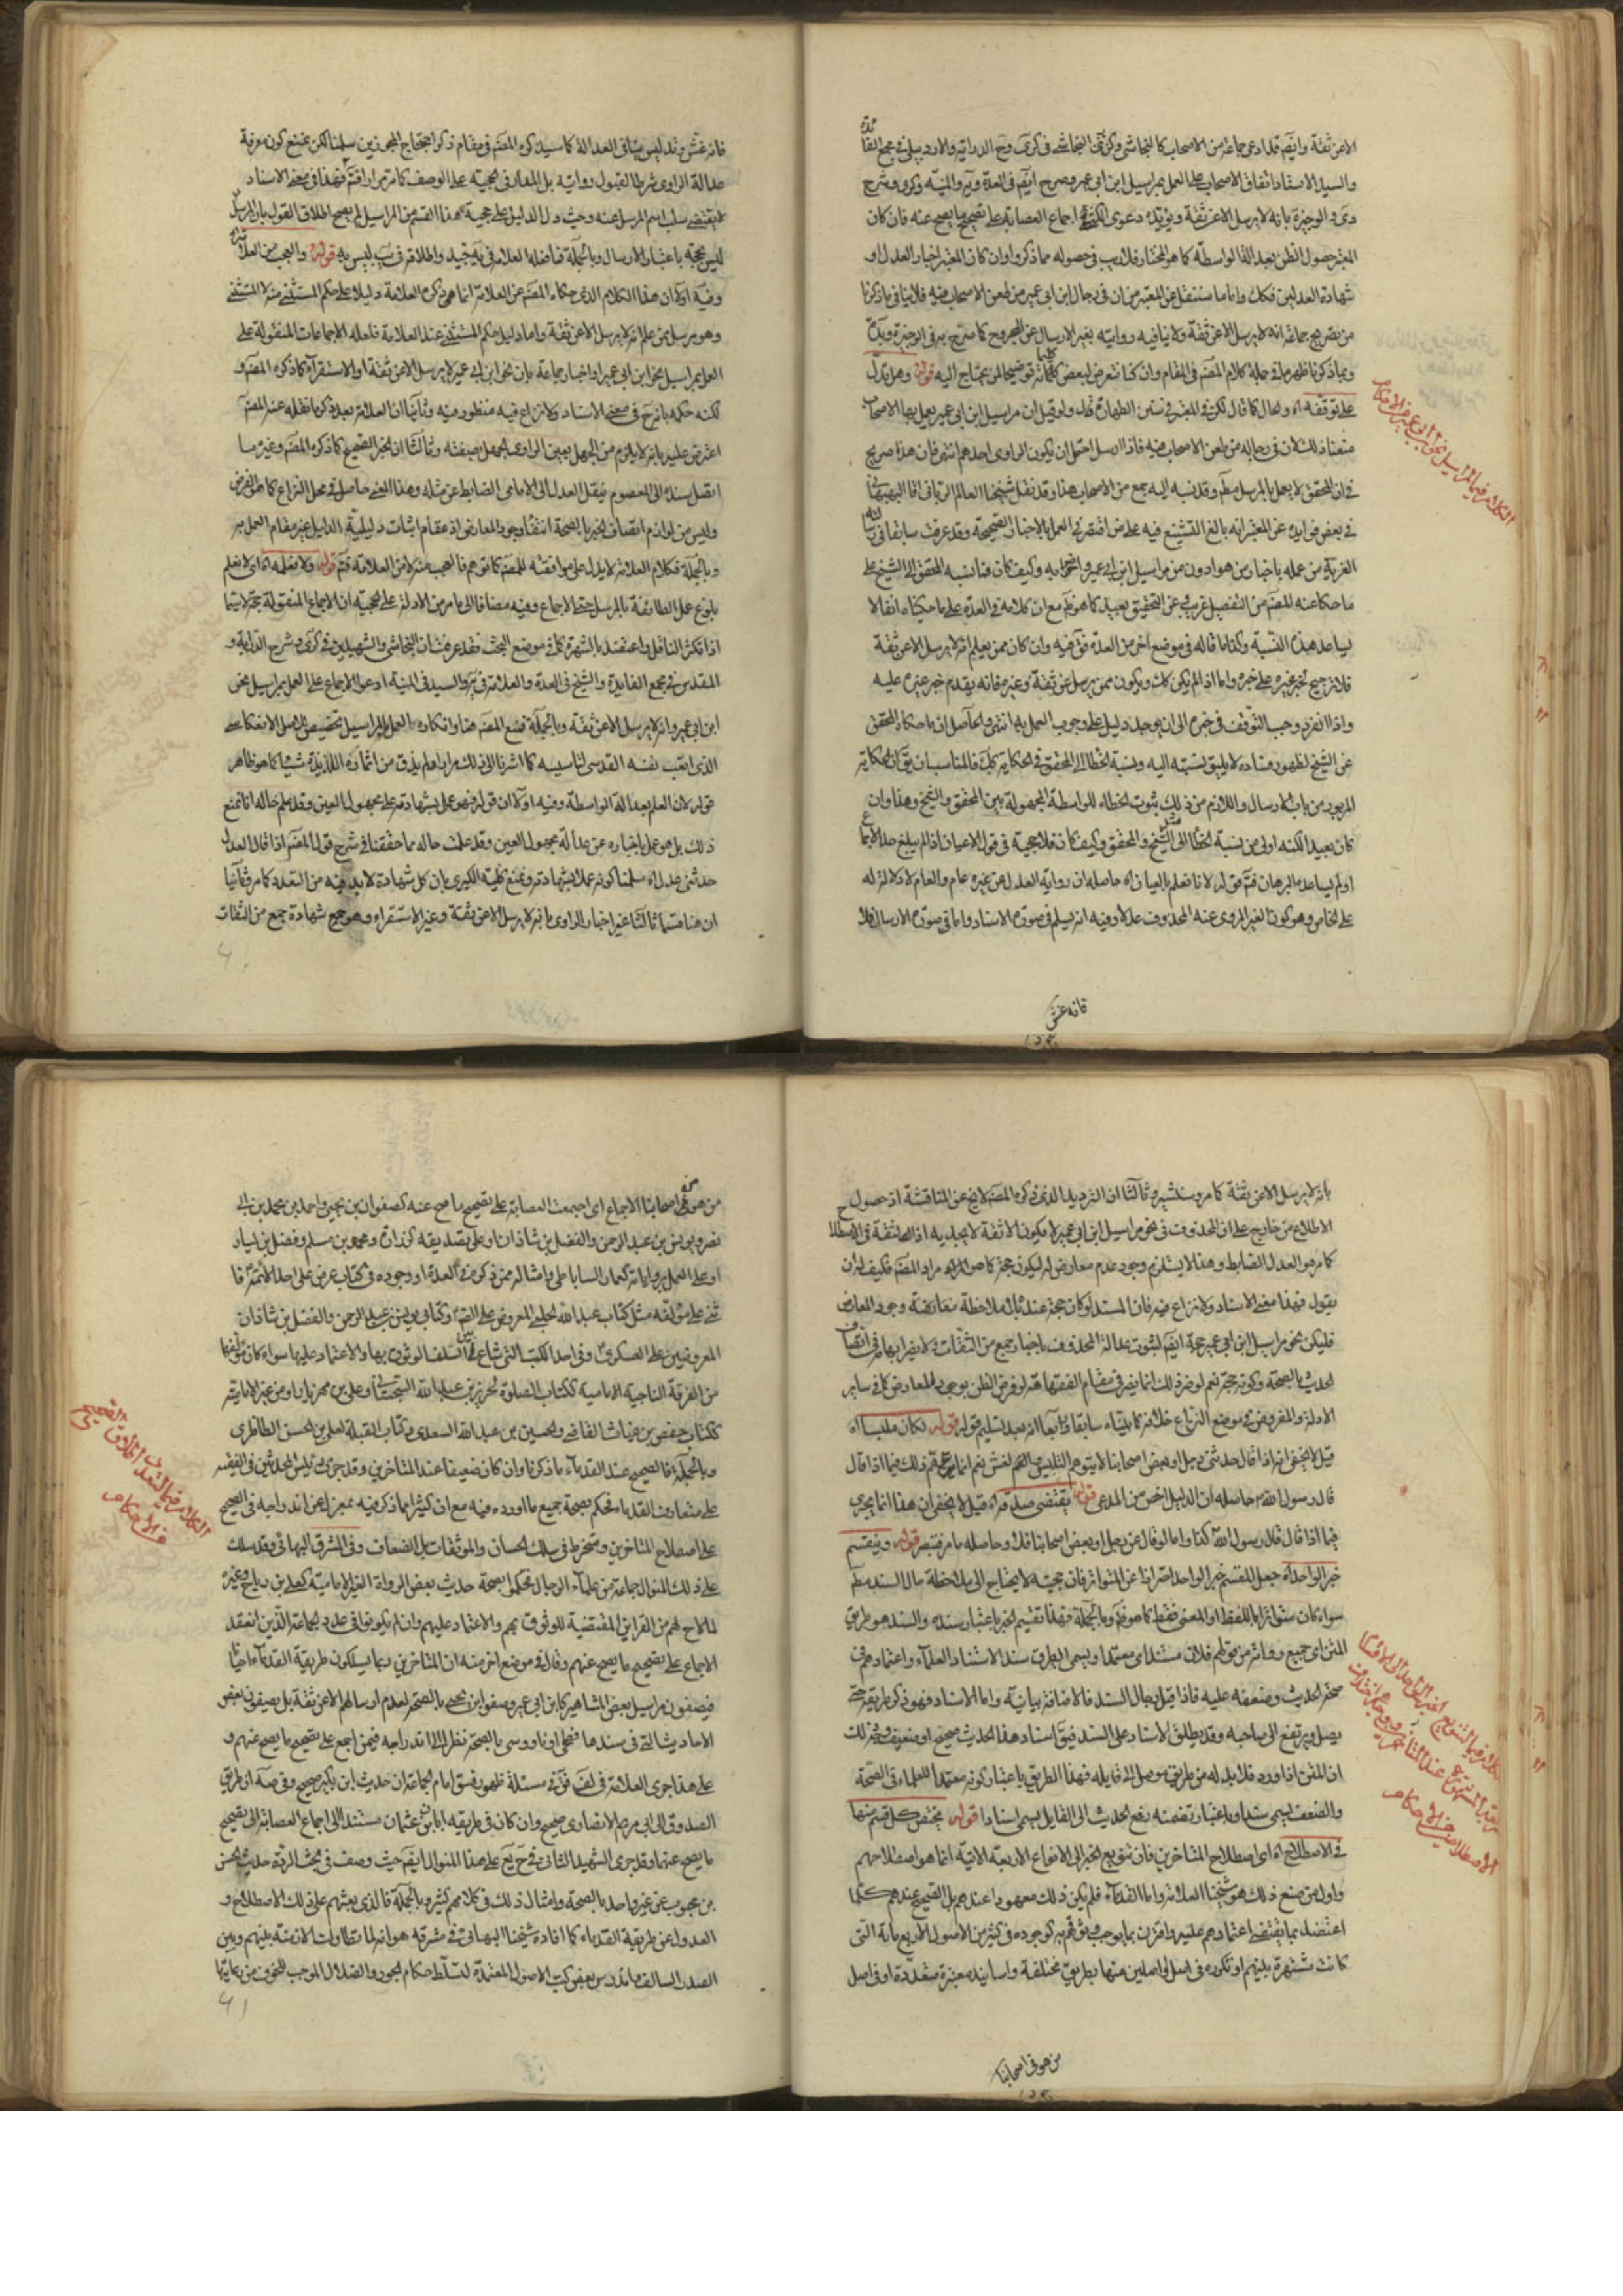 الا عن ثقة وايضم قد ادعى جماعة من الاصحاب كالنجاشى
والسيد الاستاد اتفاق الاصحاب على العمل بمراسيل ابن ابى عمير وصرح ايضم فى العدة
بانه لا يرسل الا عن ثقة ويؤيده دعوى الكشى اجماع العصابة على تصحيح ما يصح عنه فان كان
المعتبر حصول الظن بعدالة الواسطة كما هو المختار فلا ريب فى حصوله مما ذكر واوان كان المعتبر اخبار العدل او
شهادة العدلين فكك واما ما سننقل عن المعتبر من ان فى رجال ابن ابى عمير من طعن الاصحاب فيه فلا ينافى ما ذكرنا
من تصريح جماعة انه لا يرسل الا عن ثقة ولا ينافيه روايته بغير الارسال عن المجروح كما صرح به فى الوجيزة
وبما ذكرنا ظهر ما فى جملة كلام المصنم فى المقام وان كنا نتعرض لبعض كلماته توضيحا لمن يحتاج اليه قوله وهل يدل
على توقفه اه والحال كما قال لكن فى المعتبر فى سنن الطهارة قال ولو قيل ان مراسيل ابن ابى عمير يعمل بها الاصحاب
منعنا ذلك لان فى رجاله من طعن الاصحاب فيه فاذا ارسل احتمل ان يكون الراوى احدهم انتهى فان هذا صريح
فى ان المحقق لا يعمل بالمرسل مطم وقد نسبه اليه جمع من الاصحاب هنا وقد نقل شيخنا العالم الربانى اقا البهبهانى
فى بعض فوايده عن المعتبر انه بالغ التشنيع فيه على من اقتصر فى العمل بالاخبار الصحيحة وقد عرفت سابقا
من عمله باخبار من هو ادون من مراسيل ابن ابى عمير وكيف كان فما نسبه المحقق الى الشيخ على
ما حكا عنه المصنم من التفصيل غريب وعن التحقيق بعيد كما هو ظم مع ان كلامه فى العدة على ما حكيناه انفا لا
يساعد هذه النسبة وكذا ما قاله فى موضع اخر من العدة وان كان ممن يعلم انه لا يرسل الا عن ثقة
فلا ترجيح لخبر غيره على خبره واما اذا لم يكن كك ويكون ممن يرسل عن ثقة وغير ثقة فانه يقدم خبر غيره عليه
واذا انفرد وجب التوقف فى خبره الى ان يوجد دليل على وجوب العمل به انتهى والحاصل ان ما حكاه المحقق
عن الشيخ لظهور فساده لا يليق نسبته اليه ونسبة الخطا الى المحقق فى الحكاية كك فالمناسب ان يق ان الحكاية
المزبور من باب الارسال واللازم من ذلك ثبوت الخطاء للواسطة المجهولة بين المحقق والشيخ وهذا وان
كان بعيدا لكنه اولى من نسبة الخطا الى الشيخ والمحقق وكيف كان فلا حجية فى قول الاعيان اذا لم يبلغ حد الاجماع
او لم يساعده البرهان فتم قوله لانا نعلم بالعيان اه حاصله ان رواية العدل عن غيره عام والعام لا دلالة له
على الخاص وهو كون الغير المروى عنه المحذوف عدلا وفيه انه يسلم فى صورة الاسناد واما فى صورة الارسال فلا
فانه غش
الكلام فيما المراسيل
فانه غش وتدليس ينافى العدالة كما سيذكره المصنم فى مقام ذكر احتجاج المجوزين سلمنا لكن نمنع كون معرفة
عدالة الراوى شرطا لقبول روايته بل المدار فى الحجية على الوصف كما مر مرارا فتم فهذا فى معنى الاسناد
لا يقتضى سلب اسم المرسل عنه وحيث دل الدليل على حجية هذا القسم من المراسيل لم يصح اطلاق القول بان المرسل
ليس بحجة باعتبار الارسال وبالجملة فما فعله العلامة فى يه جيد واطلاقه فى يب ليس به قوله والعجب من العلامة
وفيه اولا ان هذا الكلام الذى حكاه المصنم عن العلامة انما هو ذكره العلامة دليلا على حكم المستثنى منه لا المستثنى
وهو مرسل من علم انه لا يرسل الا عن ثقة واما دليل حكم المستثنى عند العلامة فلعله الاجماعات المنقولة على
العمل بمراسيل نحو ابن ابى عمير او اخبار جماعة بان نحو ابن ابى عمير لا يرسل الا عن ثقة او الاستقراء كما ذكره المصنم و
لكنه حكمه بانه ح فى معنى الاسناد ولا نزاع فيه منظور فيه وثانيا ان العلامة بعد ذكر ما نقله عنه المصنم
اعترض عليه بانه لا يلزم من الجهل بعين الراوى الجهل بصفته وثالثا ان الخبر الصحيح كما ذكره المصنم وغيره ما
اتصل سنده الى المعصوم بنقل العدل الى الامامى الضابط عن مثله وهذا المعنى حاصل فى محل النزاع كما هو الفرض
وليس من لوازم اتصاف الخبر بالصحة انتفاء وجود المعارض اذ مقام اثبات دليلية الدليل غير مقام العمل به
وبالجملة فكلام العلامة لا يدل على موافقته للمصنم كما توهم فالعجب منه لا من العلامة فتم قوله ولا نعلمه اه اى لا نعلم
بلوغ عمل الطائفة بالمرسل حد الاجماع وفيه مضافا الى ما مر من الادلة على الحجية ان الاجماع المنقولة حجة لا سيما
اذا تكثر الناقل واعتضد بالشهرة كما فى موضع البحث فقد عرفت ان النجاشى والشهيدين فى كرى وشرح الدراية و
المقدس فى مجمع الفايدة والشيخ فى العدة والعلامة فى يه والسيد فى المنية ادعوا الاجماع على العمل بمراسيل نحو
ابن ابى عمير وانه لا يرسل الا عن ثقة وبالجملة فمنع المصنم هنا وانكاره العمل بالمراسيل تخصيص للاصل الانعكاسى
الذى اتعب نفسه القدسى لتاسيسه كما اشرنا الى ذلك مرارا ولم يذق من اثماره اللذيذة شيئا كما هو ظاهر
قوله لان العلم بعدالة الواسطة وفيه اولا ان قوله فهو عمل بشهادته على مجهول العين وقد علم حاله انا نمنع
ذلك بل هو عمل باخباره عن عدالة مجهول العين وقد علمت حاله مما حققنا فى شرح قول المصنم اذا قال العدل
حدثنى عدل اه سلمنا كونه عملا بشهادته ونمنع كلية الكبرى بان كل شهادة لا بد فيه من التعدد كما مر وثانيا
ان هنا قسما ثالثا غير اخبار الراوى بانه لا يرسل الا عن ثقة وغير الاستقراء وهو حج شهادة جمع من الثقات
بانه لا يرسل الا عن ثقة كما مر وثالثا ان الترديد الذى ذكره المصنم لا يخ عن المناقشة اذ حصول
الاطلاع من خارج على ان المحذوف فى نحو مراسيل ابن ابى عمير لا يكون الا ثقة لا يجديه
كما مر هو العدل الضابط وهذا لا يستلزم وجود عدم معارض له ليكون حجة كما هو المراد مراد المصنم فكيف له ان
يقول فهذا معنى الاسناد ولا نزاع فيه فان المسند لو كان حجة عندنا بلا ملاحظة معارضة وجود المعارض
فليكن نحو مراسيل ابن ابى عمير حجة ايضم لثبوت عدالة المحذوف باخبار جمع من الثقات ولا يضر ابهامه فى اتصاف
الحديث بالصحة وكونه حجة نعم لو ضر ذلك انما يضر فى مقام الفقاهة لو فرض الظن بوجود المعارض كما فى ساير
الادلة والمفروض فى موضع النزاع خلافه كما بيناه سابقا ورابعا انه بعد تسليم قوله قوله لكان ملبسا اه
قيل لا يخفى انه اذا قال حدثنى رجل او بعض اصحابنا لا يتوهم التلبيس والغش نعم انما يتوهم ذلك فيما اذا قال
قال رسول الله ص حاصله ان الدليل اخص من المدعى قوله يقتضى صدقه اه قيل لا يخفى ان هذا انما يجرى
فيما اذا قال قال رسول الله ص كذا واما لو قال عن رجل او بعض اصحابنا فلا وحاصله ما مر فتبصر قوله وينقسم
خبر الواحد اه جعل المقسم خبر الواحد احترازا عن المتواتر فان حجيته لا يحتاج الى ملاحظة حال السند مطم
سواء كان متواترا باللفظ او المعنى فقط كما هو ظم وبالجملة فهذا تقسيم الخبر باعتبار سنده والسند هو طريق
المتن اى جميع رواته من قولهم فلان سند اى معتمد ويسمى الطريق سندا لاستناد العلماء واعتمادهم فى
صحة الحديث وضعفه عليه فاذا قيل رجال السند فالاضافة بيانية واما الاسناد فهو ذكر طريقه حتى
يصل ويرتفع الى صاحبه وقد يطلق الاسناد على السند فيق اسناد هذا الحديث صحيح او ضعيف وجه ذلك
ان المتن اذا ورد فلا بد له من طريق موصل الى قايله فهذا الطريق باعتبار كونه معتمدا للعلماء فى الصحة
والضعف يسمى سندا وباعتبار تضمنه رفع الحديث الى القايل يسمى اسنادا قوله يختص كل قسم منها
فى الاصطلاح اه اى اصطلاح المتاخرين فان تنويع الخبر الى الانواع الاربعة الاتية انما هو اصطلاحهم
واول من صنع ذلك هو شيخنا العلامة واما القدماء فلم يكن ذلك معهودا عندهم بل الصحيح عندهم كلما
اعتضد بما يقتضى اعتمادهم عليه واقترن بما يوجب وثوقهم به كوجوده فى كثير من الاصول الاربع مائة التى
كانت مشتهرة بينهم او تكرره فى اصل او اصلين منها بطريق مختلفة واسانيد معتبرة متعددة او فى اصل
من هو فى اصحابنا
من هو فى اصحابنا الاجماع اى اجمعت العصابة على تصحيح ما صح عنه كصفوان بن يحيى واحمد بن محمد بن ابى
نصر ويونس بن عبد الرحمن والفضل بن شاذان او على تصديقه كزرارة ومحمد بن مسلم وفضيل بن يسار
او على العمل بروايته كعمار الساباطى وامثاله ممن ذكره فى العدة او وجوده فى كتاب عرض على احد الائمة
فاثنى على مؤلفه مثل كتاب عبد الله الحلبى المعروض على الصادق وكتابى يونس بن عبد الرحمن والفضل بن شاذان
المعروضين على العسكرى وفى احد الكتب التى شاع بين السلف الوثوق بها والاعتماد عليها سواء كان مؤلفها
من الفرقة الناجية الامامية ككتاب الصلوة لحريز بن عبد الله السجستانى وعلى بن مهزيار او من غير الامامية
ككتاب حفص بن غياث القاضى والحسين بن عبد الله السعدى وكتاب القبلة لعلى بن الحسن الطاطرى
وبالجملة فالصحيح عند القدماء ما ذكرنا وان كان ضعيفا عند المتاخرين وقد جرى رئيس المحدثين فى الفقيه
على متعارف القدماء فحكم بصحة جميع ما اورده فيه مع ان كثيرا مما ذكر فيه بمعزل عن اندراجه فى الصحيح
على اصطلاح المتاخرين ومنخرط فى سلك الحسان والموثقات بل الضعاف وفى المشرق البهائى وقد سلك
على ذلك المنوال جماعة من علماء الرجال فحكموا بصحة حديث بعض الرواة الغير الامامية كعلى بن رباح وغيره
لما لاح لهم من القراين المقتضية للوثوق بهم والاعتماد عليهم وان لم يكونوا فى عدد الجماعة الذين انعقد
الاجماع على تصحيح ما يصح عنهم وقال فى موضع اخر منه ان المتاخرين ربما يسلكون طريقة القدماء احيانا
فيصفون مراسيل بعض المشاهير كابن ابى عمير وصفوان بن يحيى بالصحة لعدم ارسالهم الا عن ثقة بل يصفون بعض
الاحاديث التى فى سندها فطحى او ناووسى بالصحة نظرا الى اندراجه فيمن اجمع على تصحيح ما يصح عنهم و
على هذا جرى العلامة فى لف فى مسئلة ظهور فسق امام الجماعة ان حديث ابن بكير صحيح وفى صه ان طريق
الصدوق الى ابى مريم الانصارى صحيح وان كان فى طريقه ابان بن عثمان مستندا الى اجماع العصابة الى تصحيح
ما يصح عنهما وقد جرى الشهيد الثانى على هذا المنوال ايضم حيث وصف فى بحث الردة حديث الحسن
بن محبوب عن غير واحد بالصحة وامثال ذلك فى كلامهم كثير وبالجملة فالذى بعثهم على ذلك الاصطلاح و
العدول عن طريقة القدماء كما افاده شيخنا البهائى فى مشرقه هو انه لما تطاولت الازمنة بينهم وبين
الصدر السالف واندرس بعض كتب الاصول المعتمدة لتسلط حكام الجور والضلال الموجب للخوف من